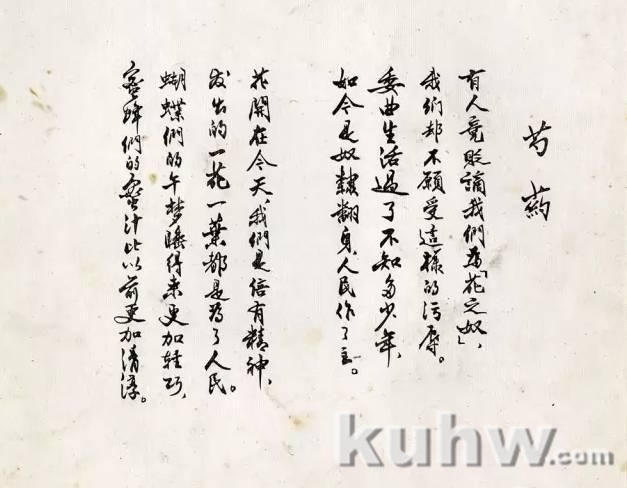 芍药
有人竟贬谪我們为「花之奴」，
我们却不願受這樣的污辱。
委曲生活過了不知多少年，
如今是奴隸翻身，人民作了主。
花開在今天，我們是倍有精神，
发出的一花一葉都是为了人民。
蝴蝶們的午梦睡得来更加轻巧，
蜜蜂們的蜜汁比以前更加清淳。
kuhw.com